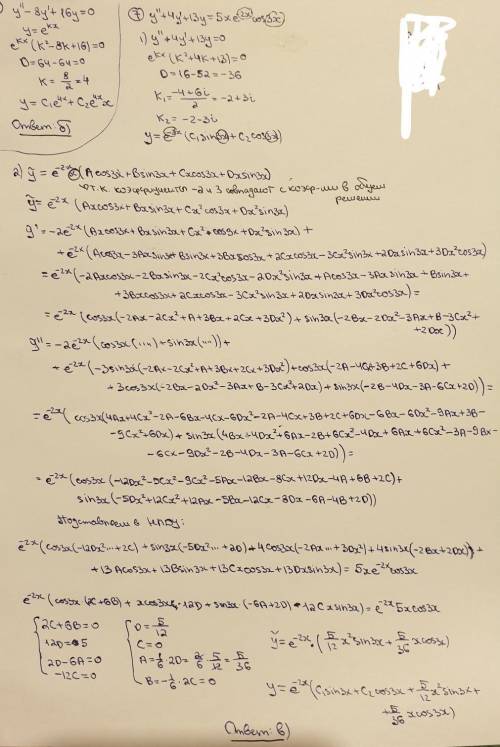 y''-8y'+16y=0
y=e^{kx}
e^{kx}(k²-8k+16)=0
D=64-64=0
k=8/2=4
y=C₁e^{4x}+C₂e^{4x}x
Ответ: б)
⑦ y''+4y'+13y=5xe^{-2x}cos3x
1) y''+4y'+13y=0
e^{kx}(k²+4k+13)=0
D=16-52=-36
k₁=(-4+6i)/2=-2+3i
k₂=-2-3i
y=e^{-2x}(C₁sin3x+C₂cos3x)
2) ỹ=e^{-2x}x(Acos3x+Bsin3x+Cxcos3x+Dxsin3x)
т.к. коэффициенты -2 и 3 совпадают с коэф-ми в общем
решении
ỹ=e^{-2x}(Axcos3x+Bxsin3x+Cx²cos3x+Dx²sin3x)
y'=-2e^{-2x}(Axcos3x+Bxsin3x+Cx²cos3x+Dx²sin3x)+
+e^{-2x}(Acos3x-3Axsin3x+Bsin3x+3Bxcos3x+2Cxcos3x-3Cx²sin3x+2Dxsin3x+3Dx²cos3x)
=e^{-2x}(-2Axcos3x-2Bxsin3x-2Cx²cos3x-2Dx²sin3x+Acos3x-3Axsin3x+Bsin3x+
+3Bxcos3x+2Cxcos3x-3Cx²sin3x+2Dxsin3x+3Dx²cos3x)=
=e^{-2x}(cos3x(-2Ax-2Cx²+A+3Bx+2Cx+3Dx²)+sin3x(-2Bx-2Dx²-3Ax+B-3Cx²+
+2Dx))
y''=-2e^{-2x}(cos3x(....)+sin3x(...))+
+e^{-2x}(-3sin3x(-2Ax-2Cx²+A+3Bx+2Cx+3Dx²)+cos3x(-2A-4Cx+3B+2C+6Dx)+
+3cos3x(-2Bx-2Dx²-3Ax+B-3Cx²+2Dx)+sin3x(-2B-4Dx-3A-6Cx+2D))=
=e^{-2x}(cos3x(4Ax+4Cx²-2A-6Bx-4Cx-6Dx²-2A-4Cx+3B+2C+6Dx-6Bx-6Dx²-9Ax+3B-
-9Cx²+6Dx)+sin3x(4Bx+4Dx²+6Ax-2B+6Cx²-4Dx+6Ax+6Cx²-3A-9Bx-
-6Cx-9Dx²-2B-4Dx-3A-6Cx+2D))=
=e^{-2x}(cos3x(-12Dx²-5Ax-12Bx-8Cx+12Dx-4A+6B+2C)+
sin3x(-5Dx²+12Cx²+12Ax-5Bx-12Cx-8Dx-6A-4B+2D))
Подставляем в НЛДУ:
e^{-2x}(cos3x(-12Dx²...+2C)+sin3x(-5Dx²...+2D)+4cos3x(-2Ax...+3Dx²)+4sin3x(-2Bx+2Dx)+
+13Acos3x+13Bsin3x+13Cxcos3x+13Dxsin3x)=5xe^{-2x}cos3x
e^{-2x}(cos3x(2C+6B)+xcos3x·12D+sin3x(-6A+2D)-12Cxsin3x)=e^{-2x}5xcos3x
{2C+6B=0
12D=5
2D-6A=0
-12C=0
{D=5/12
C=0
A=1/6·2D=2/6·5/12=5/36
B=-1/6·2C=0
ỹ=e^{-2x}·(5/12x²sin3x+5/36xcos3x)
y=e^{-2x}(C₁sin3x+C₂cos3x+5/12x²sin3x+
+5/36xcos3x)
Ответ: в)